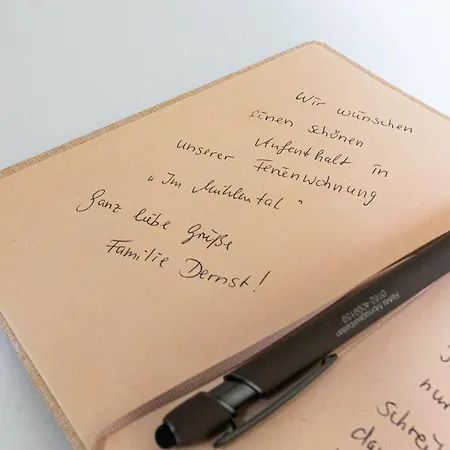 Wir wünschen
einen schönen
Aufenthalt in
unserer Ferienwohnung
„Im Mühlental“
Ganz liebe Grüße
Familie Dernst!
nur
schrei